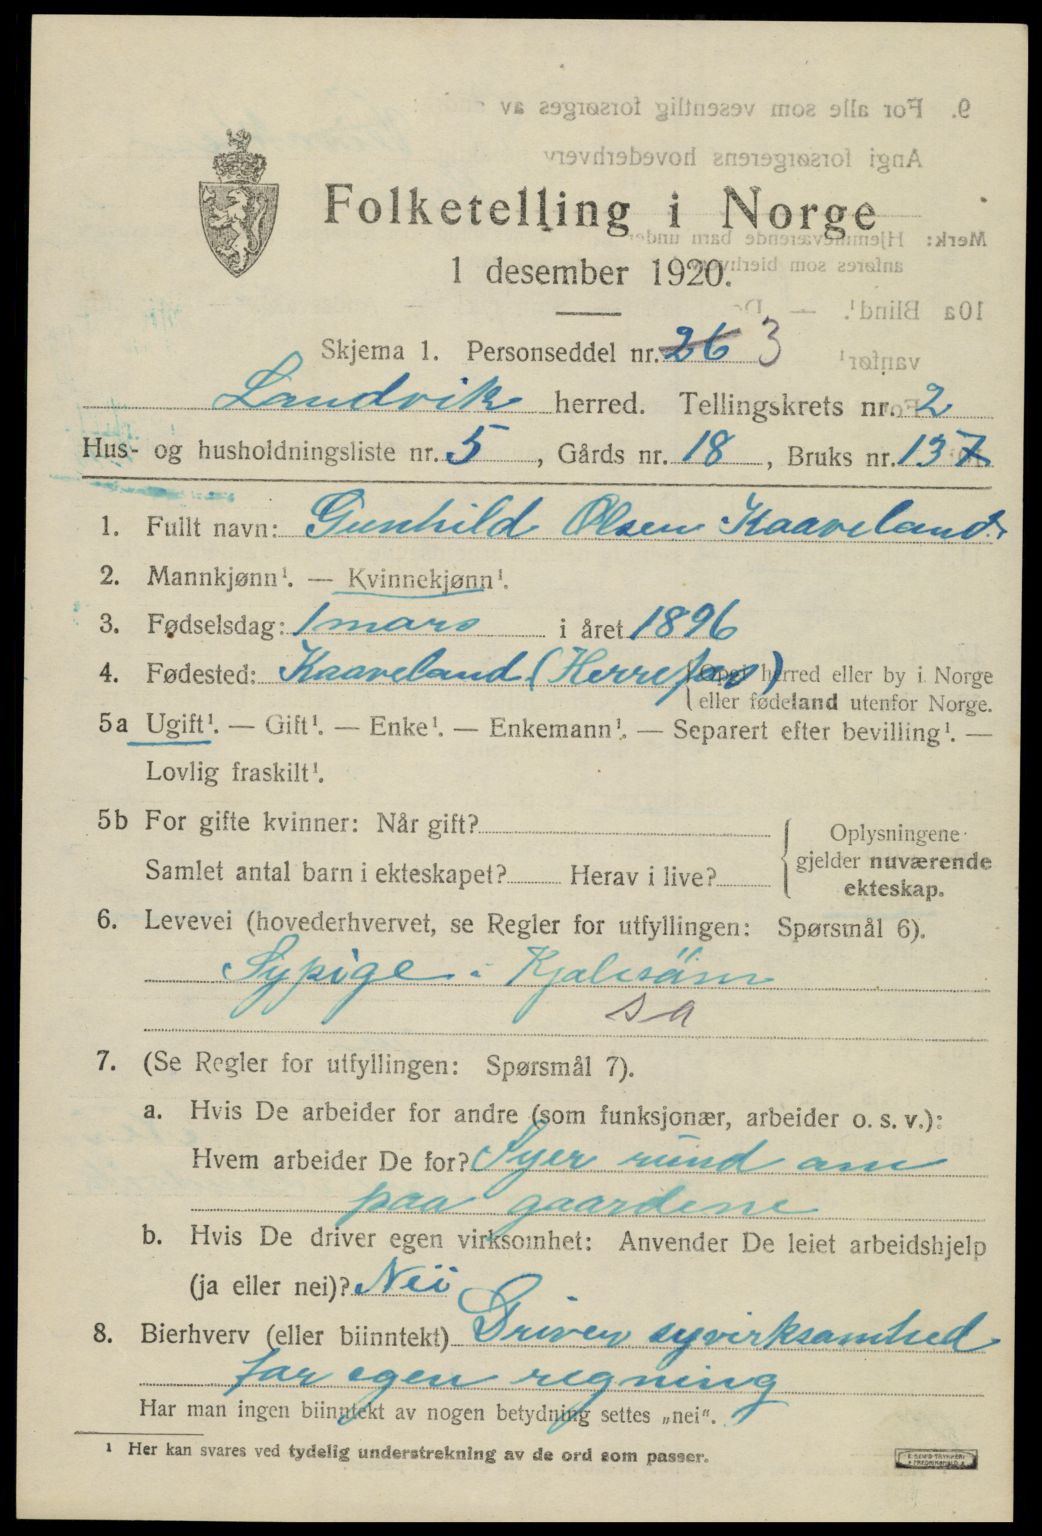 Folketelling i Norge
1 desember 1920.
Skjema 1. Personseddel nr. 26 3
Landvik herred. Tellingskrets nr. 2
Hus- og husholdningsliste nr. 5, Gårds nr. 18, Bruks nr. 137
1. Fullt navn: Gunhild Olsen Kaaveland.
2. Mannkjønn¹. — Kvinnekjønn¹.
3. Fødselsdag: 1 mars i året 1896
4. Fødested: Kaaveland (Herrefos) (Opgi herred eller by i Norge
eller fødeland utenfor Norge.
5a Ugift¹. — Gift¹. — Enke¹. — Enkemann¹. — Separert efter bevilling¹. —
Lovlig fraskilt¹.
5b For gifte kvinner: Når gift?
Samlet antal barn i ekteskapet? Herav i live?
Oplysningene
gjelder nuværende
ekteskap.
6. Levevei (hovederhvervet, se Regler for utfyllingen: Spørsmål 6).
Sypige i Kjolesöm
sa
7. (Se Regler for utfyllingen: Spørsmål 7).
a. Hvis De arbeider for andre (som funksjonær, arbeider o. s. v.):
Hvem arbeider De for? Syer rund om
paa gaardene
b. Hvis De driver egen virksomhet: Anvender De leiet arbeidshjelp
(ja eller nei)? Nei
8. Bierhverv (eller biinntekt) Driver syvirksamhed
for egen regning
Har man ingen biinntekt av nogen betydning settes „nei“.
¹ Her kan svares ved tydelig understrekning av de ord som passer.
9. For alle som vesentlig forsørges av
Angi forsørgerens hovederhverv
Merk: Hjemmeværende barn under
anføres som bierhverv
10a Blind¹. — Dø
vanfør¹